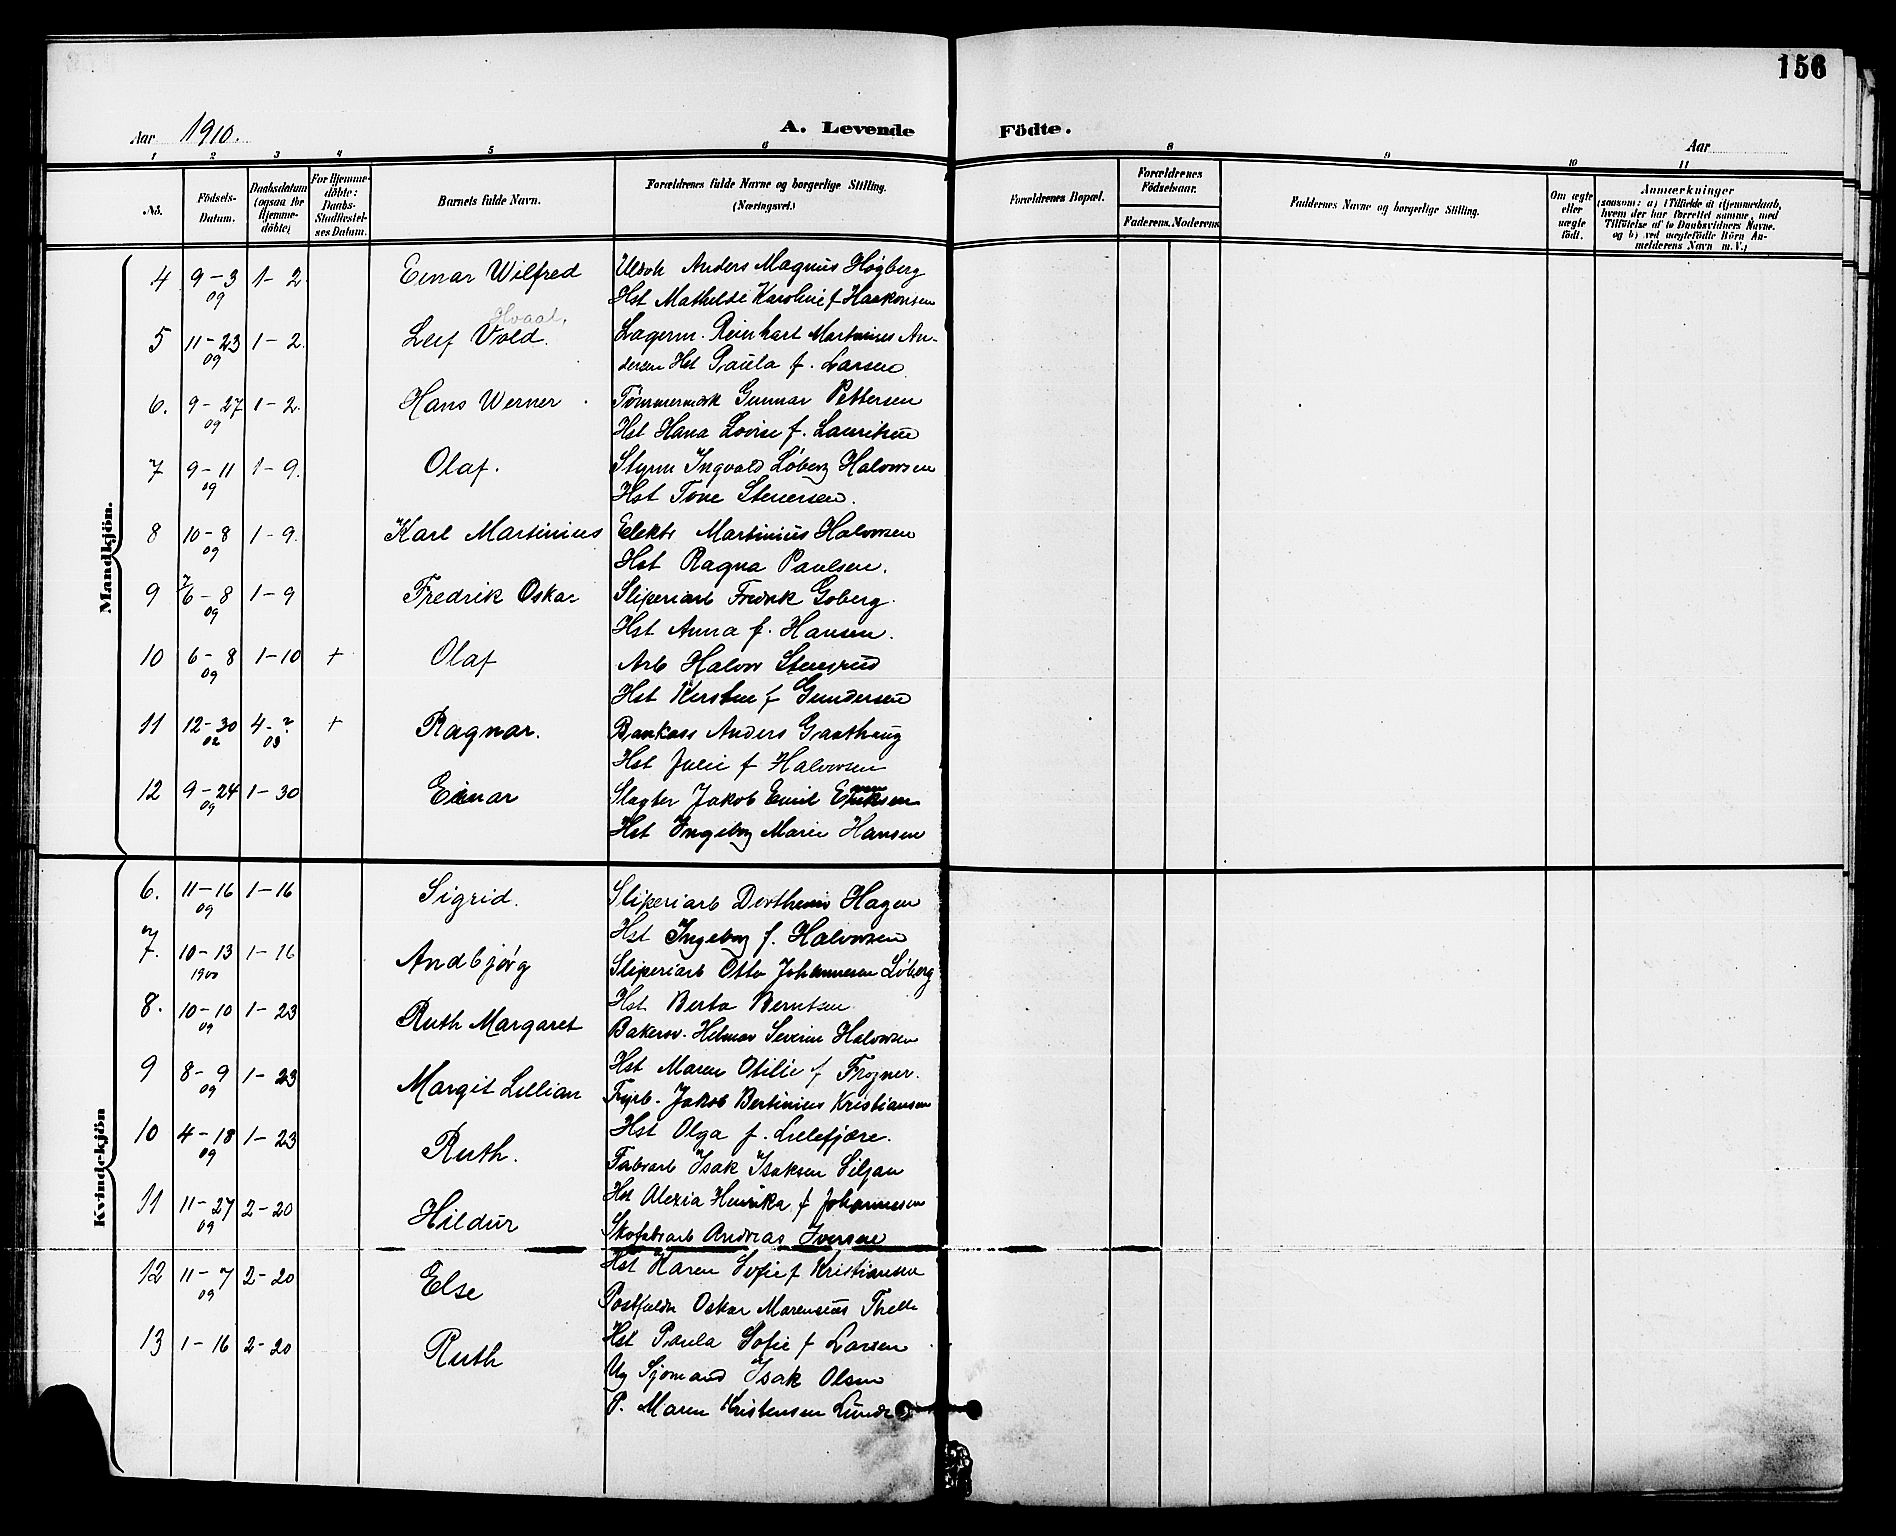 156
Aar 1910.
A. Levende Födte.
Aar
1 2 3 4 5 6 8 9 10 11
No.
Födsels-Datum.
Daabsdatum (ogsaa for Hjemme-döbte)
For Hjemme-döbte: Daabs-Stadfæstel-ses Datum.
Barnets fulde Navn.
Forældrenes fulde Navne og borgerlige Stilling. (Næringsvei.)
Forældrenes Bopæl.
Forældrenes Födselsaar.
Faderens. Moderens
Faddernes Navne og borgerlige Stilling.
Om ægte eller uægte födt.
Anmærkninger
(saasom: a) i Tilfælde at Hjemmedaab,
hvem der har forrettet samme, med
Tilföielse af to Daabsvidners Navne.
og b) ved uægtefödte Börn An-
melderens Navn m. V.)
Mandkjön.
4 9-3 09 1-2. Einar Wilfred Anders Magnus Høgberg
Hst Mathilde Karoline f Haakonsen
Hvaal.
5 11-23 09 1-2. Leif Vold. Lagerm. Reinhart Martinius An-
dersen Hst Paula f. Larsen
6. 9-27 09 1-2. Hans Werner Tømmermsk Gunnar Pettersen
Hst Hana Lovise f. Lauritsen
7 9-11 09 1-9. Olaf. Styrm Ingvald Løberg Halvorsen
Hst Tone Stenersen.
8 10-8 09 1-9. Karl Martinius Elektr Martinius Halvorsen
Hst Ragna Paulsen.
9 7 6-8 09 1-9 Fredrik Oskar Sliperiarb Fredrik Goberg.
Hst Anna f. Hansen.
10 6-8 09 1-10 + Olaf Arb Halvor Stensrud
Hst Kirsten f Gundersen
11 12-30 02 4-? 03 + Ragnar. Bankass Anders Gaathaug
Hst Julie f Halvorsen
12 9-24 09 1-30 Einar Slagter Jakob Emil
Hst Ingeborg Marie Hansen
Kvindekjön
6. 11-16 09 1-16 Sigrid. Sliperiarb Dorthenius Hagen
Hst Ingeborg f. Halvorsen
7. 10-13 1900 1-16 Andbjørg Sliperiarb Otto Johannesen Løberg
Hst Berta Berntsen
8. 10-10 09 1-23 Ruth Margaret Bakersv. Helmer Severin Halvorsen
Hst Maren Otilie f Frogner.
9 8-9 09 1-23 Margit Lillian Fyrb. Jakob Bertinius Kristiansen
Hst Olga f. Lillefjære.
10 4-18 09 1-23 Ruth. Fabrarb Isak Isaksen Siljan
Hst Alexia Henrika f Johannesen
11 11-27 09 2-20 Hildur Skofabrarb Andreas Iversen
Hst Karen Sofie f Kristiansen
12 11-7 09 2-20 Else Postfuldm Oskar Marensius Thelle
Hst Paula Sofie f Larsen
13 1-16 2-20 Ruth Ug Sjømand Isak Olsen
P. Maren Kristensen Lunde